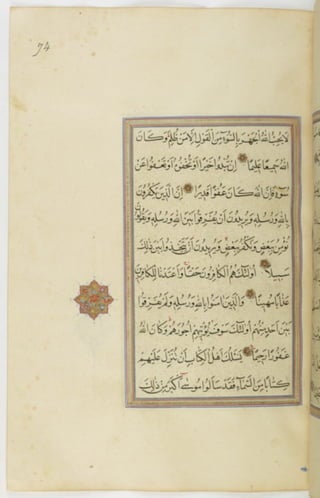 74
لا يحب الله الجهر بالسوء من القول الا من ظلم وكان
الله سميعا عليما ان تبدوا خيرا او تخفوه او تعفوا عن
سوء فان الله كان عفوا قديرا ان الذين يكفرون
بالله ورسله ويريدون ان يفرقوا بين الله ورسله ويقولون
نؤمن ببعض ونكفر ببعض ويريدون ان يتخذوا بين ذلك
سبيلا اولئك هم الكافرون حقا واعتدنا للكافرين
عذابا مهينا والذين امنوا بالله ورسله ولم يفرقوا
بين احد منهم اولئك سوف يؤتيهم اجورهم وكان الله
غفورا رحيما يسئلك اهل الكتاب ان تنزل عليهم
كتابا من السماء فقد سالوا موسى اكبر من ذلك